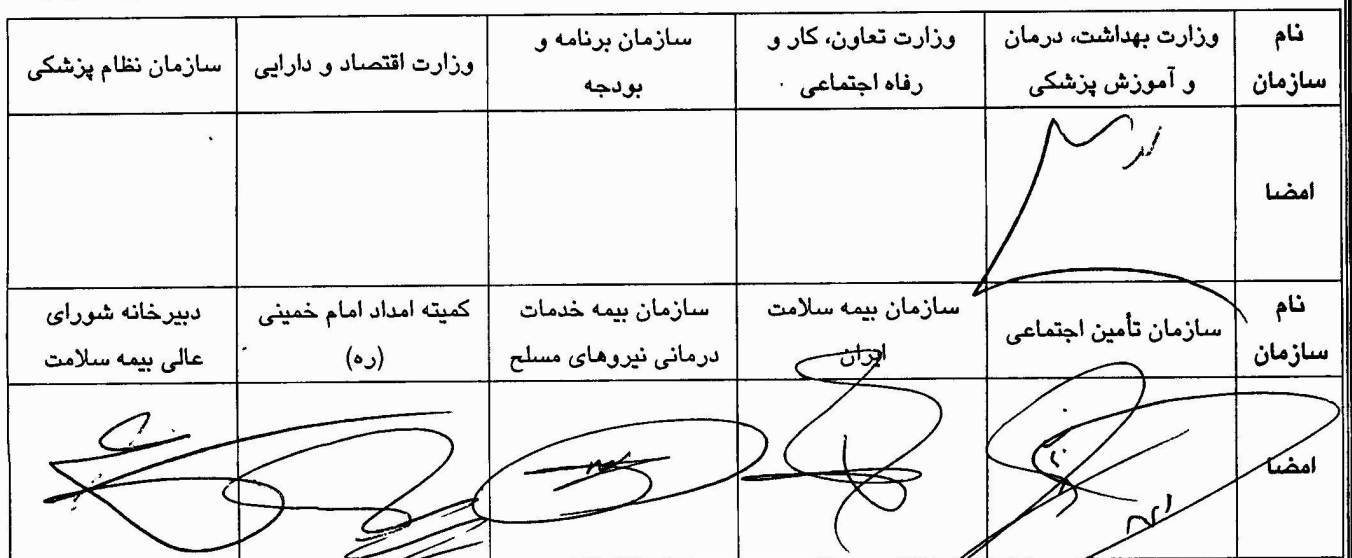 نام سازمان | وزارت بهداشت، درمان و آموزش پزشکی | وزارت تعاون، کار و رفاه اجتماعی | سازمان برنامه و بودجه | وزارت اقتصاد و دارایی | سازمان نظام پزشکی
امضا
نام سازمان | سازمان تأمین اجتماعی | سازمان بیمه سلامت ایران | سازمان بیمه خدمات درمانی نیروهای مسلح | کمیته امداد امام خمینی (ره) | دبیرخانه شورای عالی بیمه سلامت
امضا